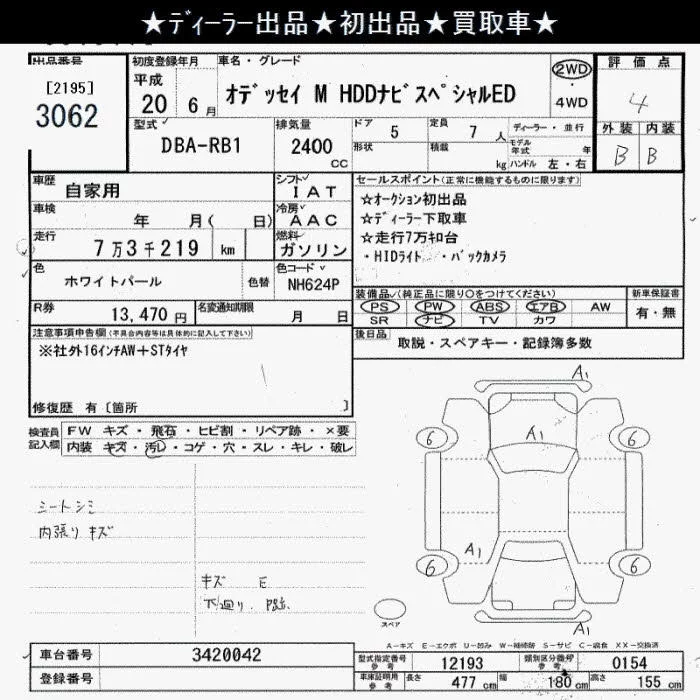 ★ﾃﾞｨｰﾗｰ出品★初出品★買取車★
出品番号
[2195]
3062
初度登録年月
平成
20 6月
車名・グレード
ｵﾃﾞｯｾｲ M HDDﾅﾋﾞｽﾍﾟｼｬﾙED
2WD
・
4WD
評価点
4
外装 内装
B B
型式
DBA-RB1
排気量
2400
CC
ドア
5
定員
7 人
形状
積載
kg
ディーラー・並行
モデル年式 年
ハンドル 左・右
車歴
自家用
シフト
I AT
車検
年 月( 日)
冷房
AAC
走行
7万3千219 km
燃料
ガソリン
色
ホワイトパール
色替
色コード
NH624P
R券
13,470 円
名変通知期限
月 日
セールスポイント(正常に機能するものに限ります)
☆ｵｰｸｼｮﾝ初出品
☆ﾃﾞｨｰﾗｰ下取車
☆走行7万ｷﾛ台
・HIDﾗｲﾄ ・ﾊﾞｯｸｶﾒﾗ
装備品(純正品に限り○をつけてください)
PS PW ABS エアB AW
SR ナビ TV カワ
新車保証書
有・無
後日品
取説・スペアキー・記録簿多数
注意事項申告欄(不具合内容等は具体的に記入して下さい)
※社外16ｲﾝﾁAW+STﾀｲﾔ
修復歴 有〔箇所 〕
検査員記入欄
FW キズ・飛石・ヒビ割・リペア跡・×要
内装 キズ・汚レ・コゲ・穴・スレ・キレ・破レ
シートシミ
内張りキズ
キズ E
下廻り.
A1
6 A1 6
A1
6 6
スペア
A1
A－キズ E－エクボ U－凹み W－補修跡 S－サビ C－腐食 XX－交換済
車台番号
3420042
登録番号
型式指定番号
参考
12193
類別区分番号
参考
0154
車庫証明用
参考
長さ 477 cm 幅 180 cm 高さ 155 cm